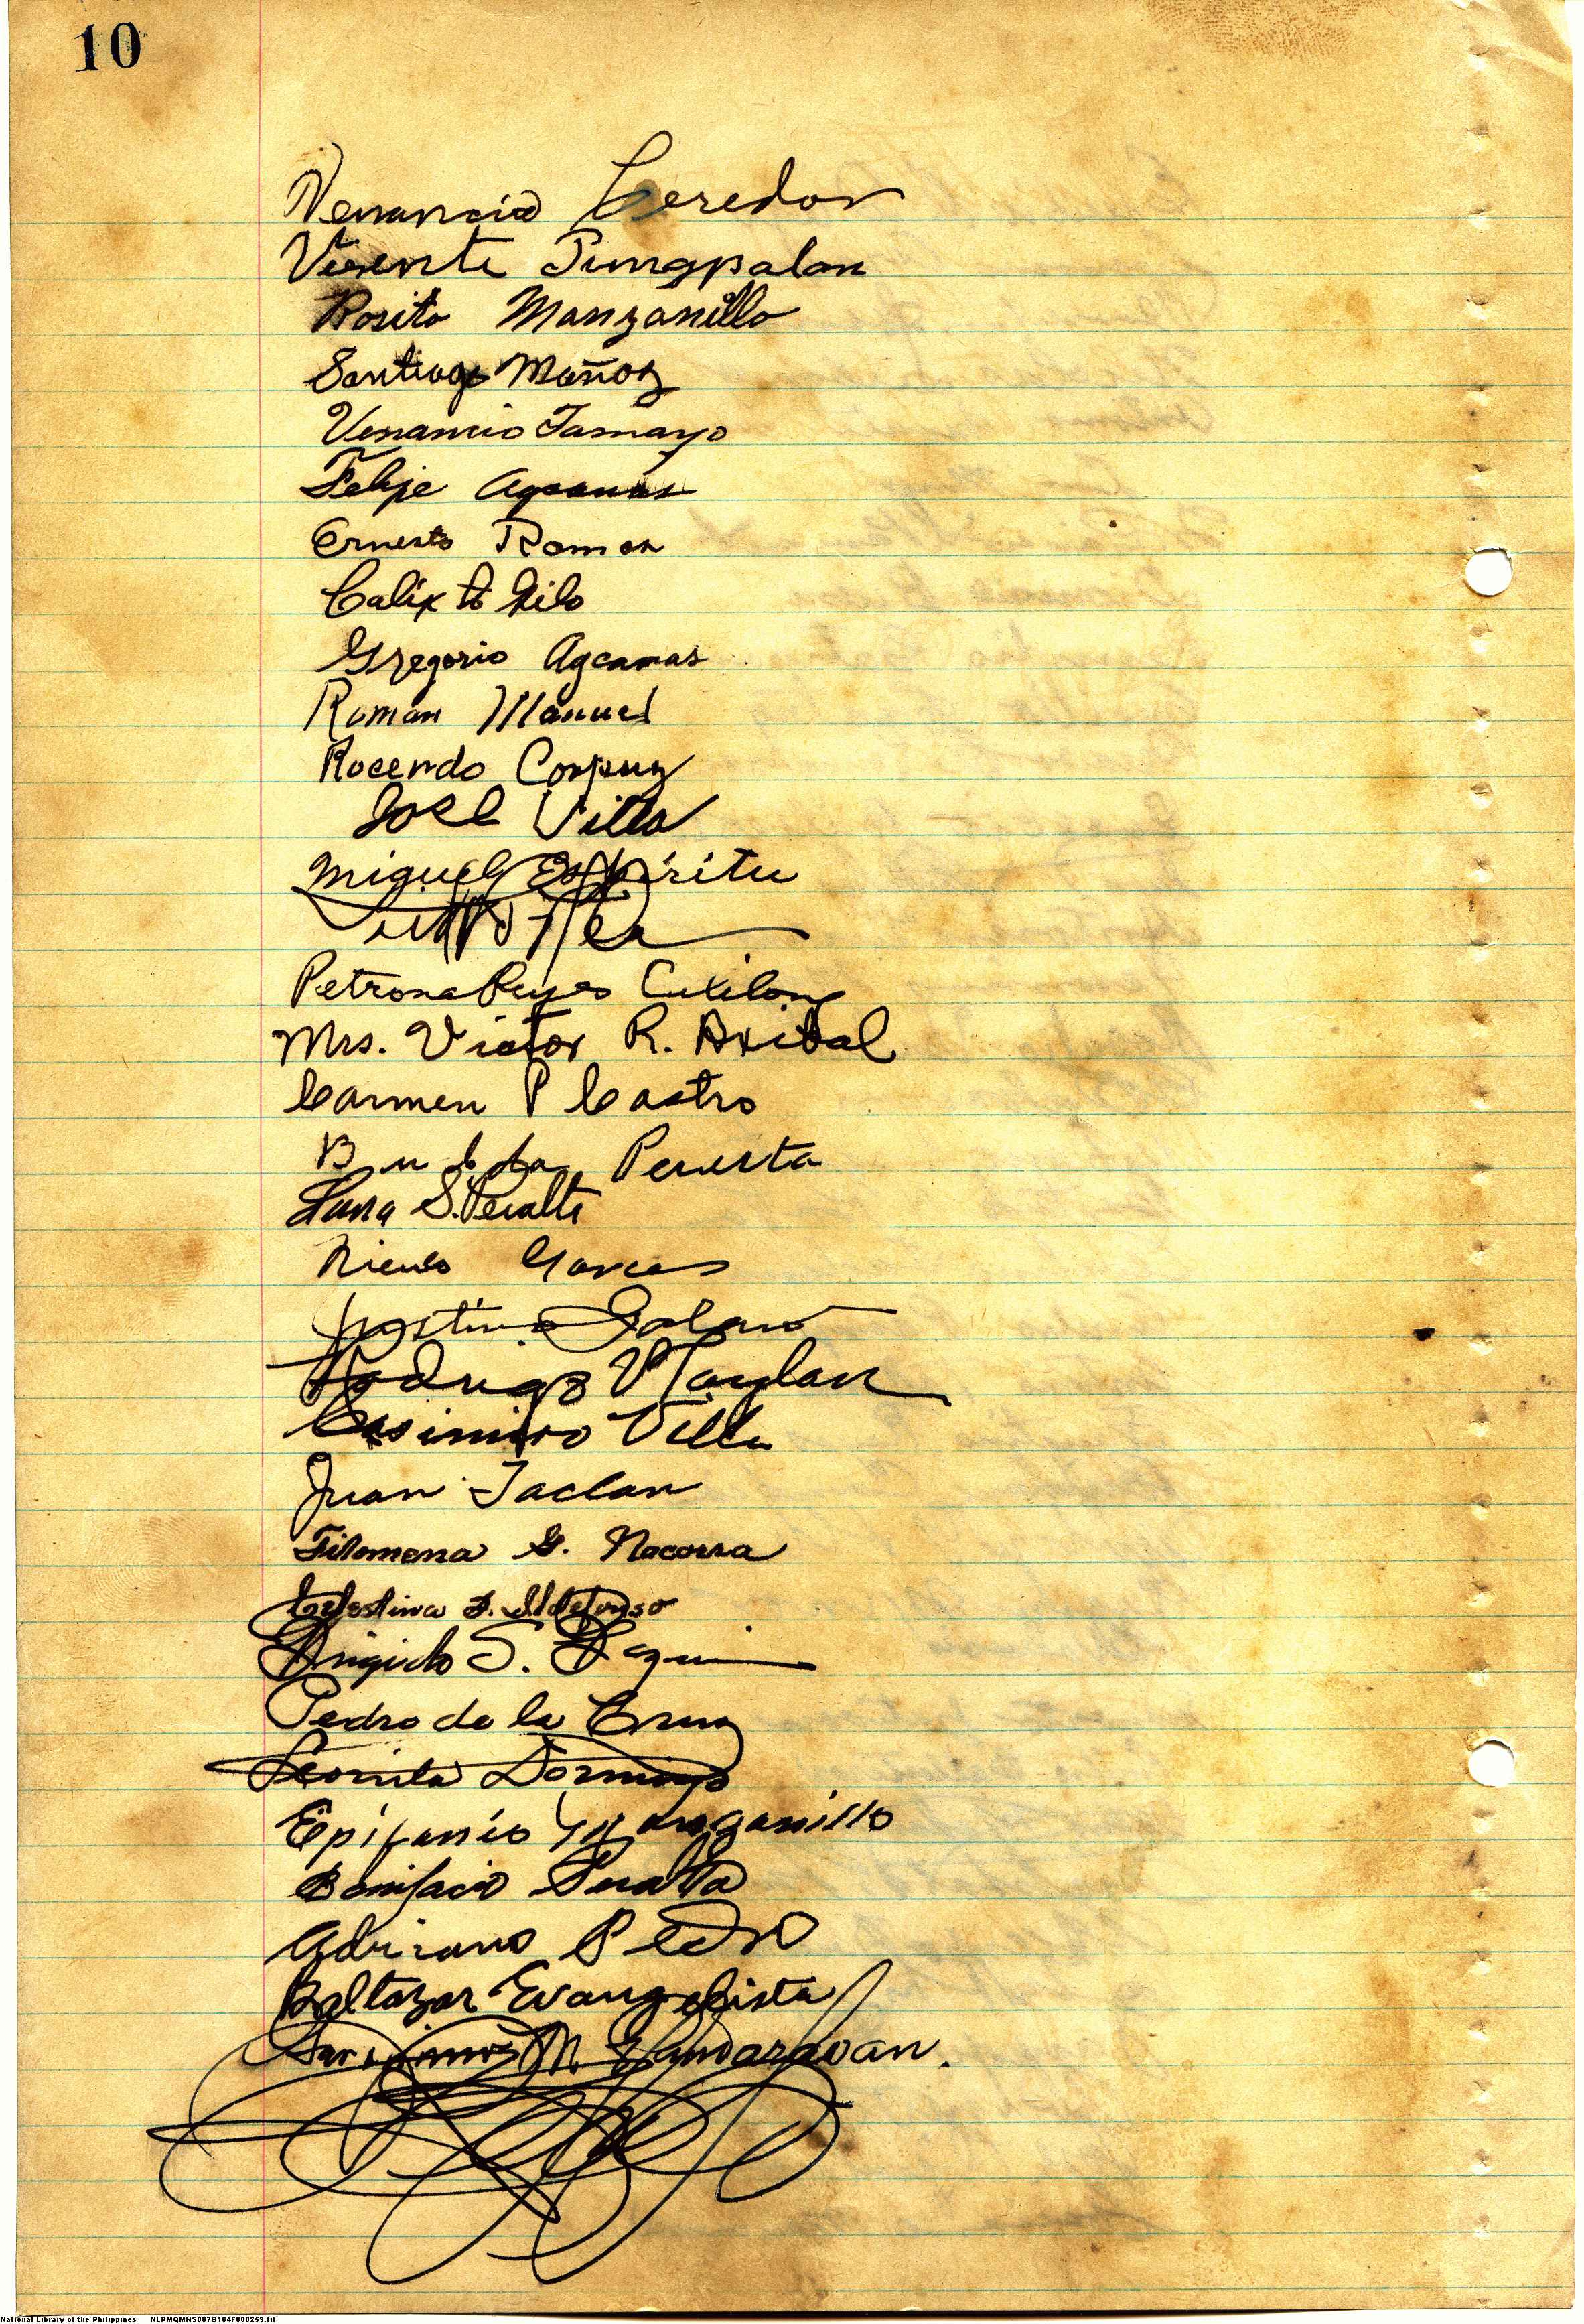 10
Venancio Ceredon
Vicente Pungpalan
Rosita Manzanillo
Santiago Mañoz
Venancio Tamayo
Felipe Agcanas
Ernesto Ramon
Calixto Gilo
Gregorio Agcanas
Roman Manuel
Rocendo Corpuz
Jose Villa
Miguel Espiritu
Petrona Reyes
Mrs. Victor R. Axibal
Carmen P Castro
Peresta
S. Peralta
Nieves Garces
Rodrigo
Casimiro Villa
Juan Taclan
Filomena G. Nacorra
Celestina F. Ildefonso
Brigido S.
Pedro de la Cruz
Leonila Domingo
Epifanio Manganillo
Bonifacio Peralta
Adriano Pedro
Baltazar Evangelista
M.
National Library of the Philippines NLPMQMNS007B104F000259.tif